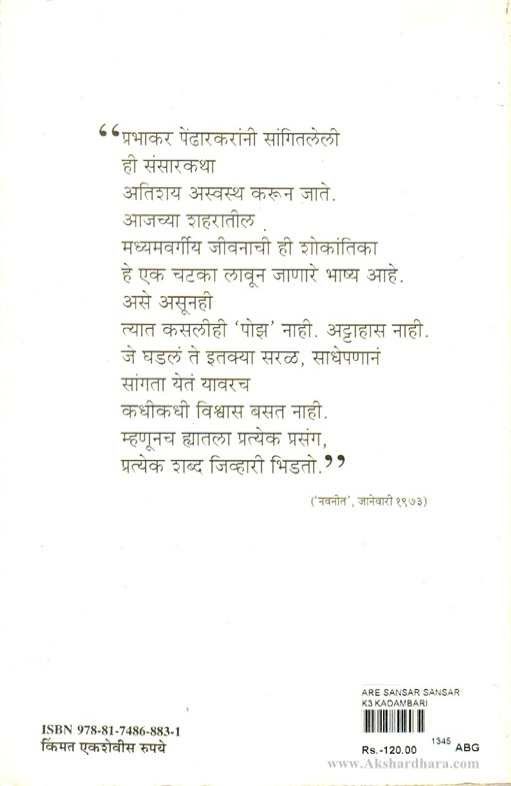 “प्रभाकर पेंढारकरांनी सांगितलेली
ही संसारकथा
अतिशय अस्वस्थ करून जाते.
आजच्या शहरातील
मध्यमवर्गीय जीवनाची ही शोकांतिका
हे एक चटका लावून जाणारे भाष्य आहे.
असे असूनही
त्यात कसलीही ‘पोझ’ नाही. अट्टाहास नाही.
जे घडलं ते इतक्या सरळ, साधेपणानं
सांगता येतं यावरच
कधीकधी विश्वास बसत नाही.
म्हणूनच ह्यातला प्रत्येक प्रसंग,
प्रत्येक शब्द जिव्हारी भिडतो.”
(‘नवनीत’, जानेवारी १९७३)
ISBN 978-81-7486-883-1
किंमत एकशेवीस रुपये
ARE SANSAR SANSAR
K3 KADAMBARI
Rs.-120.00 1345 ABG
www.Akshardhara.com